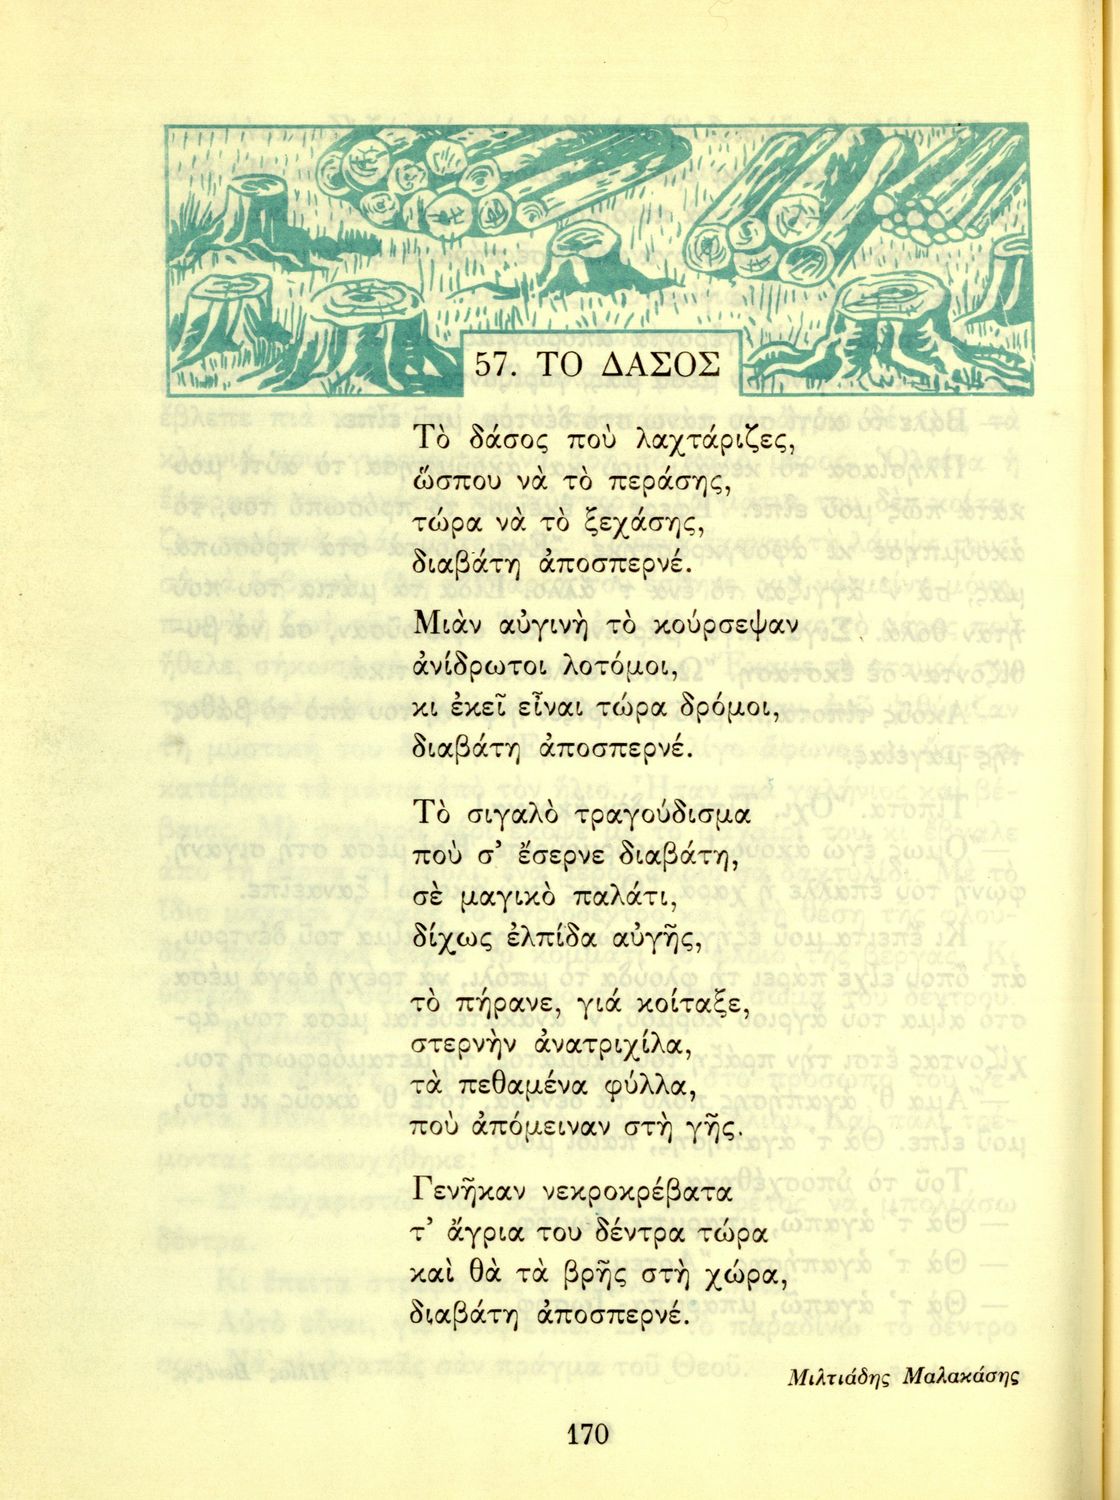 57. ΤΟ ΔΑΣΟΣ
Τὸ δάσος ποὺ λαχτάριζες,
ὥσπου νὰ τὸ περάσης,
τώρα νὰ τὸ ξεχάσης,
διαβάτη ἀποσπερνέ.
Μιὰν αὐγινὴ τὸ κούρσεψαν
ἀνίδρωτοι λοτόμοι,
κι ἐκεῖ εἶναι τώρα δρόμοι,
διαβάτη ἀποσπερνέ.
Τὸ σιγαλὸ τραγούδισμα
ποὺ σ’ ἔσερνε διαβάτη,
σὲ μαγικὸ παλάτι,
δίχως ἐλπίδα αὐγῆς,
τὸ πήρανε, γιά κοίταξε,
στερνὴν ἀνατριχίλα,
τὰ πεθαμένα φύλλα,
ποὺ ἀπόμειναν στὴ γῆς.
Γενῆκαν νεκροκρέβατα
τ’ ἄγρια του δέντρα τώρα
καὶ θὰ τὰ βρῆς στὴ χώρα,
διαβάτη ἀποσπερνέ.
Μιλτιάδης Μαλακάσης
170